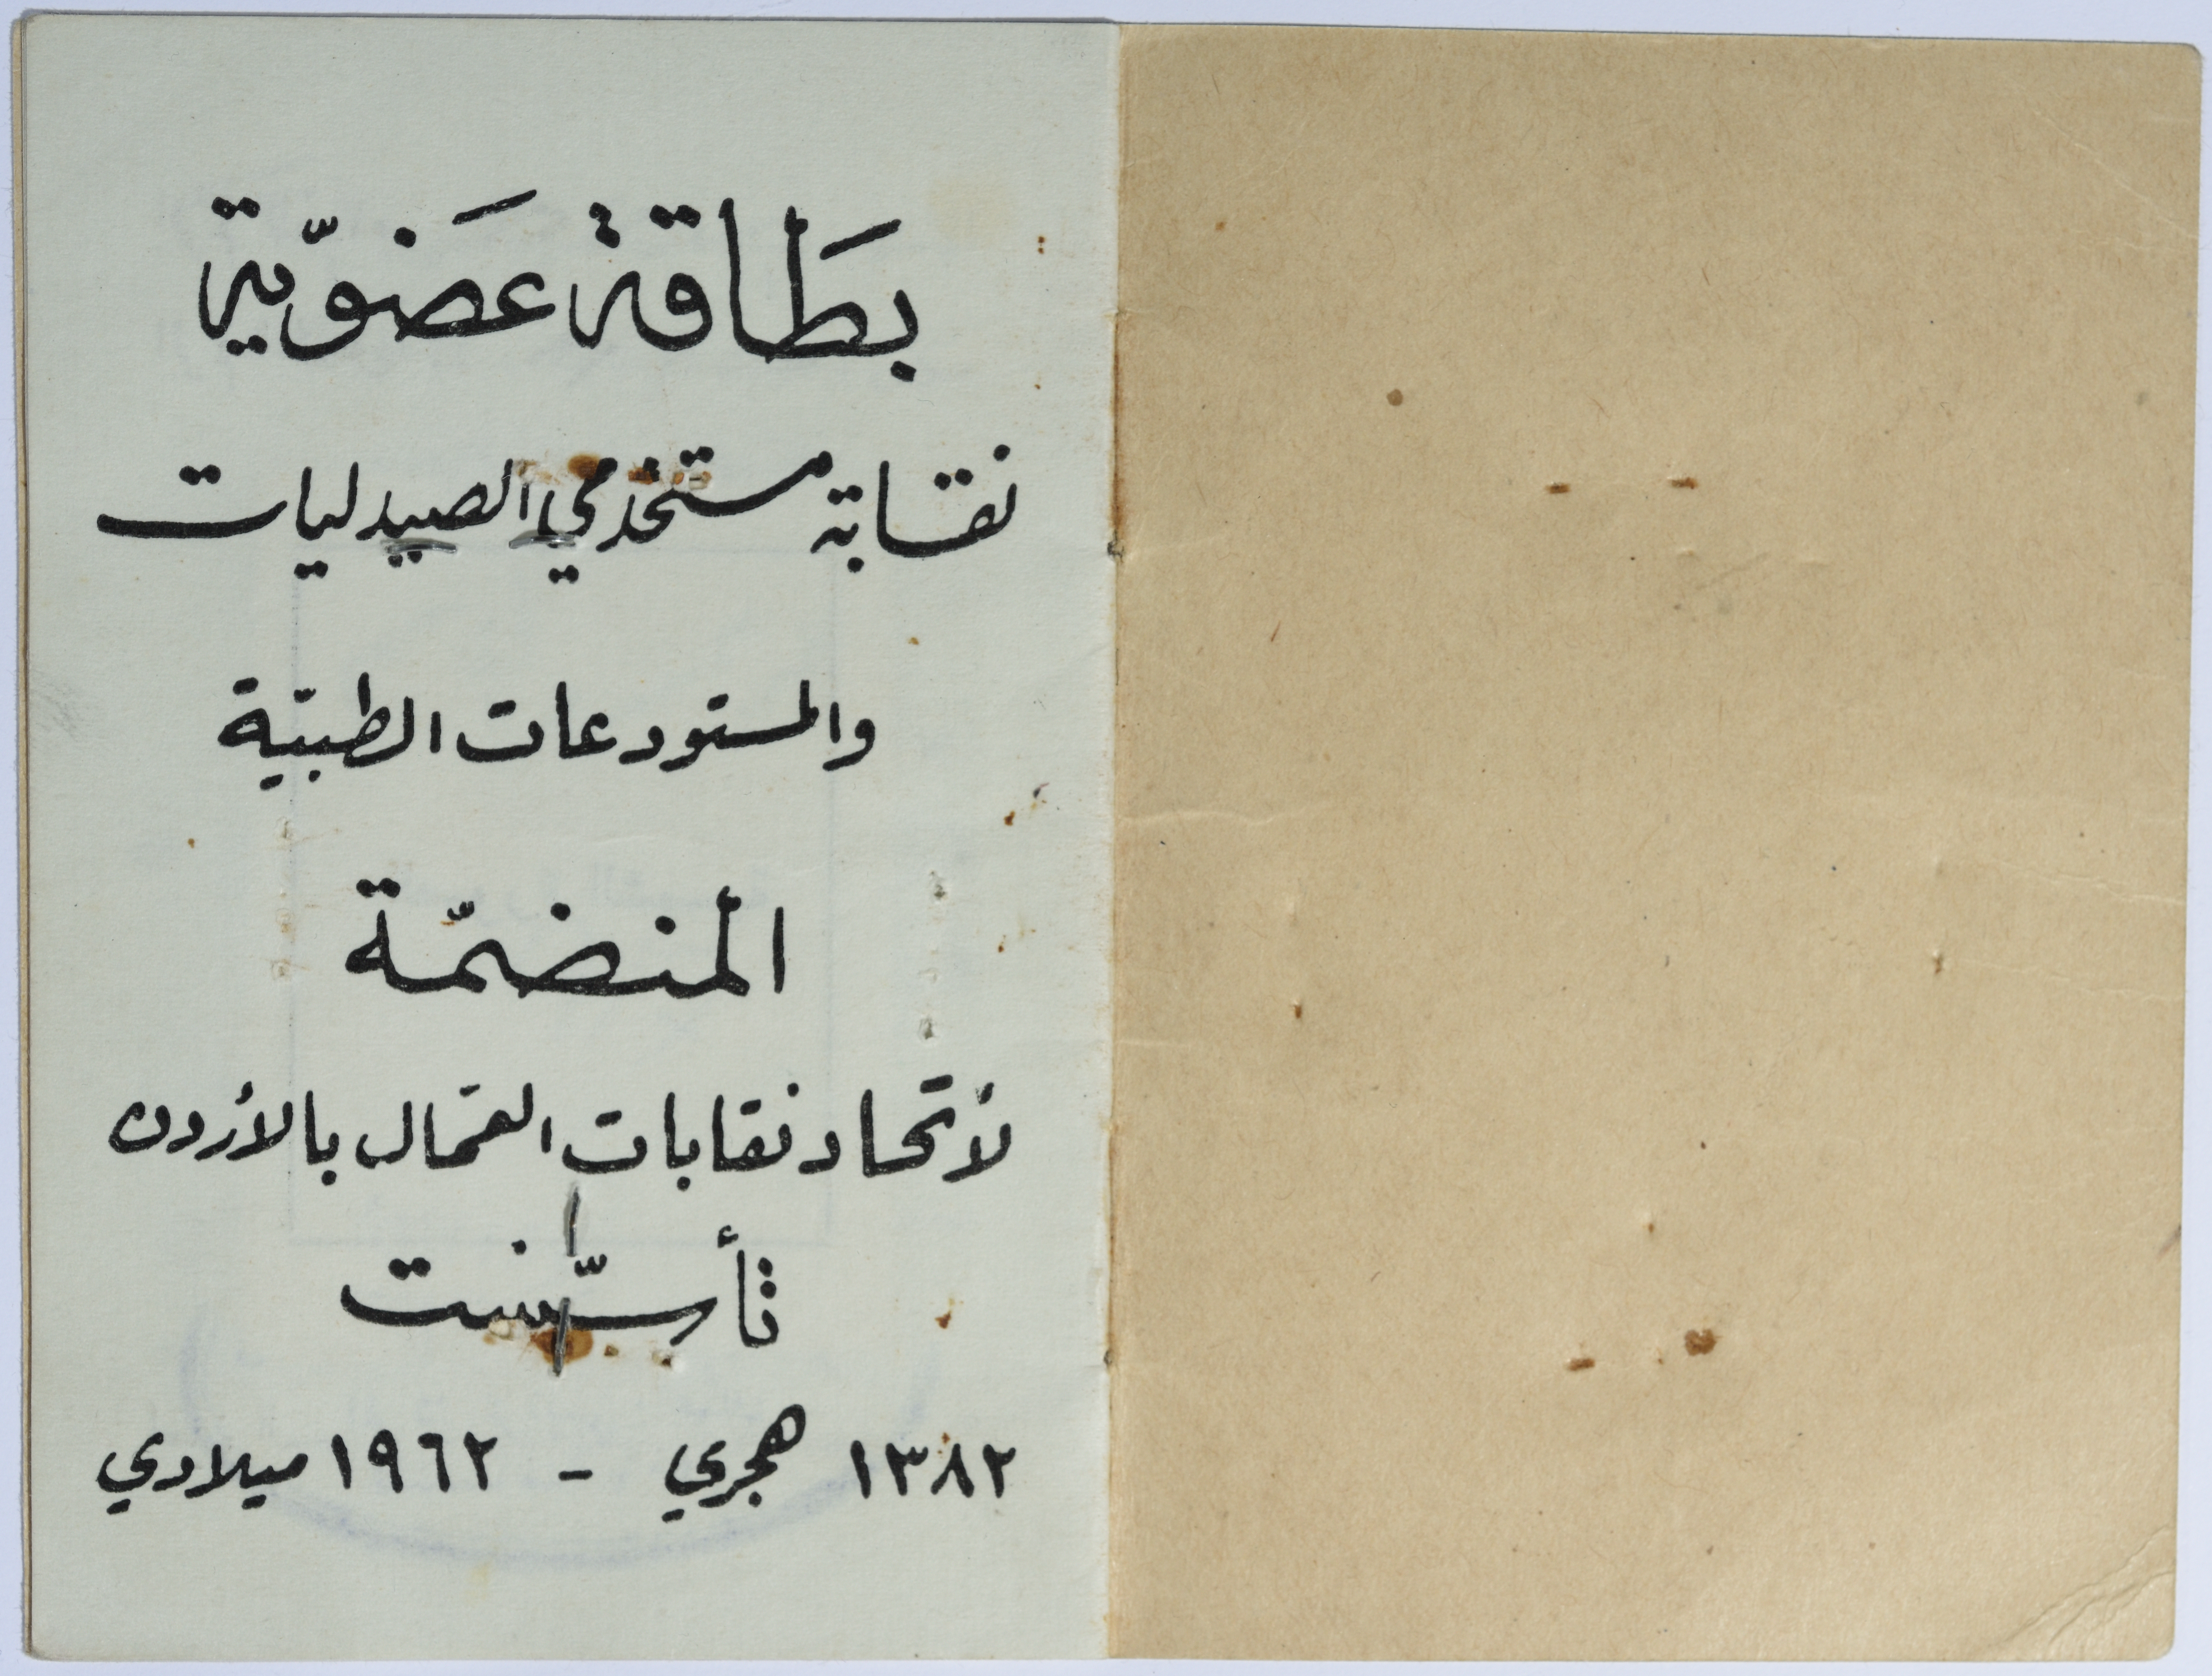 بَطَاقة عَضويّة
نقابة مستخدمي الصيدليات
والمستودعات الطبيّة
المنضمّة
لأتحاد نقابات العمّال بالأردن
تأسّست
١٣٨٢ هجري - ١٩٦٢ ميلادي